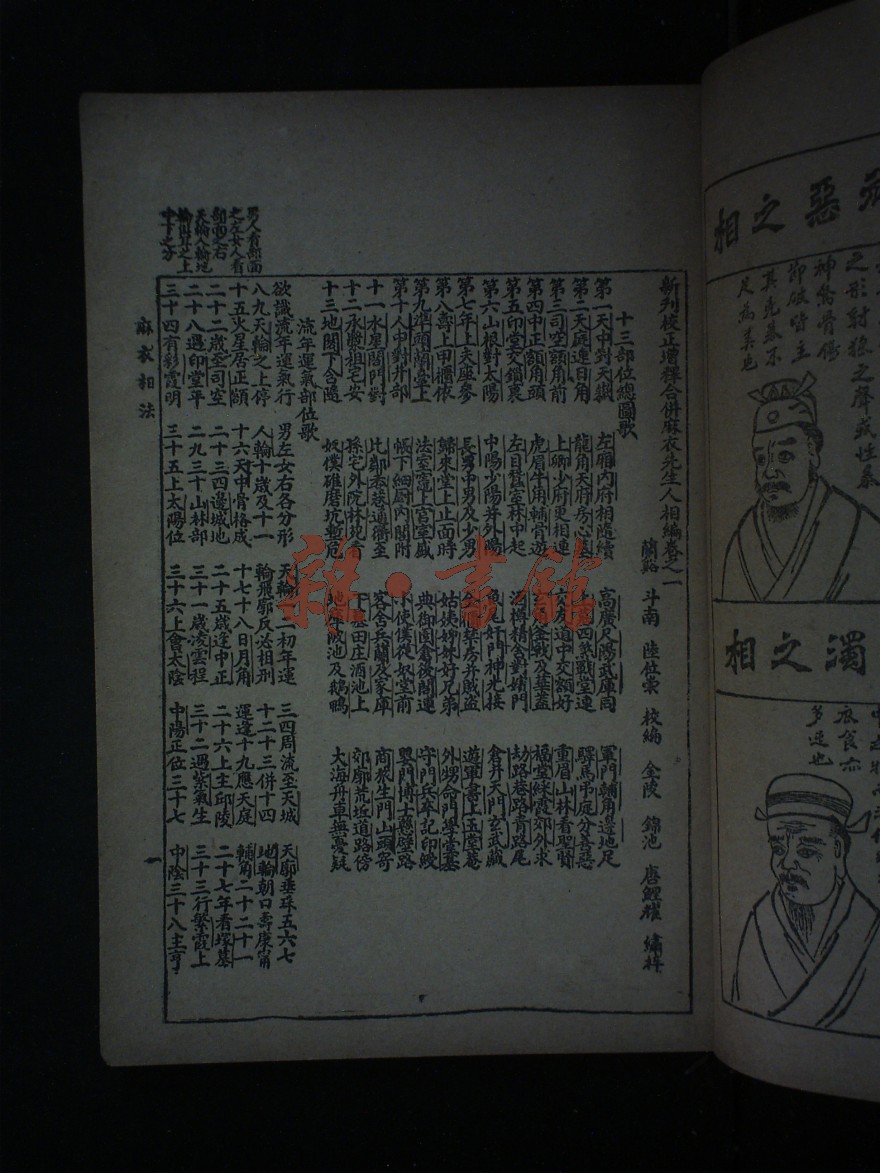 惡之相
濁之相
衣食亦
多迍也
新刊校正增釋合併麻衣先生人相編卷之一
蘭谿 斗南 陸位崇 校編 金陵 錦池 唐鯉耀 繡梓
十三部位總圖歌
第一天中對天嶽 左廂內府相隨續 高廣尺陽武庫同 軍門輔角邊地足
第二天庭連日角 龍角天府房心墓 上墓四煞戰堂連 驛馬弔庭分善惡
第三司空額角前 上卿少府更相連 交友道中交額好 重眉山林看聖賢
第四中正額角頭 虎眉牛角輔骨遊 玄角斧戟及華蓋 福堂綵霞郊外求
第五印堂交鎖裏 左目蠶室林中起 酒樽精舍對嬪門 劫路巷路青路尾
第六山根對太陽 中陽少陽并外陽 魚尾奸門神光接 倉井天門玄武藏
第七年上夫座參 長男中男及少男 金櫃禁房并賊盜 遊軍書上玉堂菴
第八壽上甲櫃依 歸來堂上正面時 姑姨姊妹好兄弟 外甥命門學堂基
第九準頭蘭臺上 法室竈上宮室盛 典御園倉後閣連 守門兵卒記印綬
第十人中對井部 帳下細廚內閣附 小使僕從妓堂前 嬰門博士懸壁路
十一水星閣門對 比鄰委巷通衢至 客舍兵蘭及家庫 商旅生門山頭寄
十二承漿祖宅安 孫宅外院林苑看 下墓田庄酒池上 郊廓荒坵道路傍
十三地閣下舍隨 奴僕碓磨坑塹危 地庫陂池及鵝鴨 大海舟車無憂疑
流年運氣部位歌
欲識流年運氣行 男左女右各分形 天輪一二初年運 三四周流至天城 天廓垂珠五六七
八九天輪之上停 人輪十歲及十一 輪飛廓反必相刑 十二十三併十四 地輪朝口壽康甯
十五火星居正額 十六天中骨格成 十七十八日月角 運逢十九應天庭 輔角二十二十一
二十二歲至司空 二十三四邊城地 二十五歲逢中正 二十六上主邱陵 二十七年看塚墓
二十八遇印堂平 二九三十山林部 三十一歲凌雲程 三十二遇紫氣生 三十三行繁霞上
三十四有彩霞明 三十五上太陽位 三十六上會太陰 中陽正位三十七 中陰三十八主亨
男人看部面
之左女人看
部面之右
天輪人輪地
輪俱耳之上
中下之分
麻衣相法
一
雜·書館